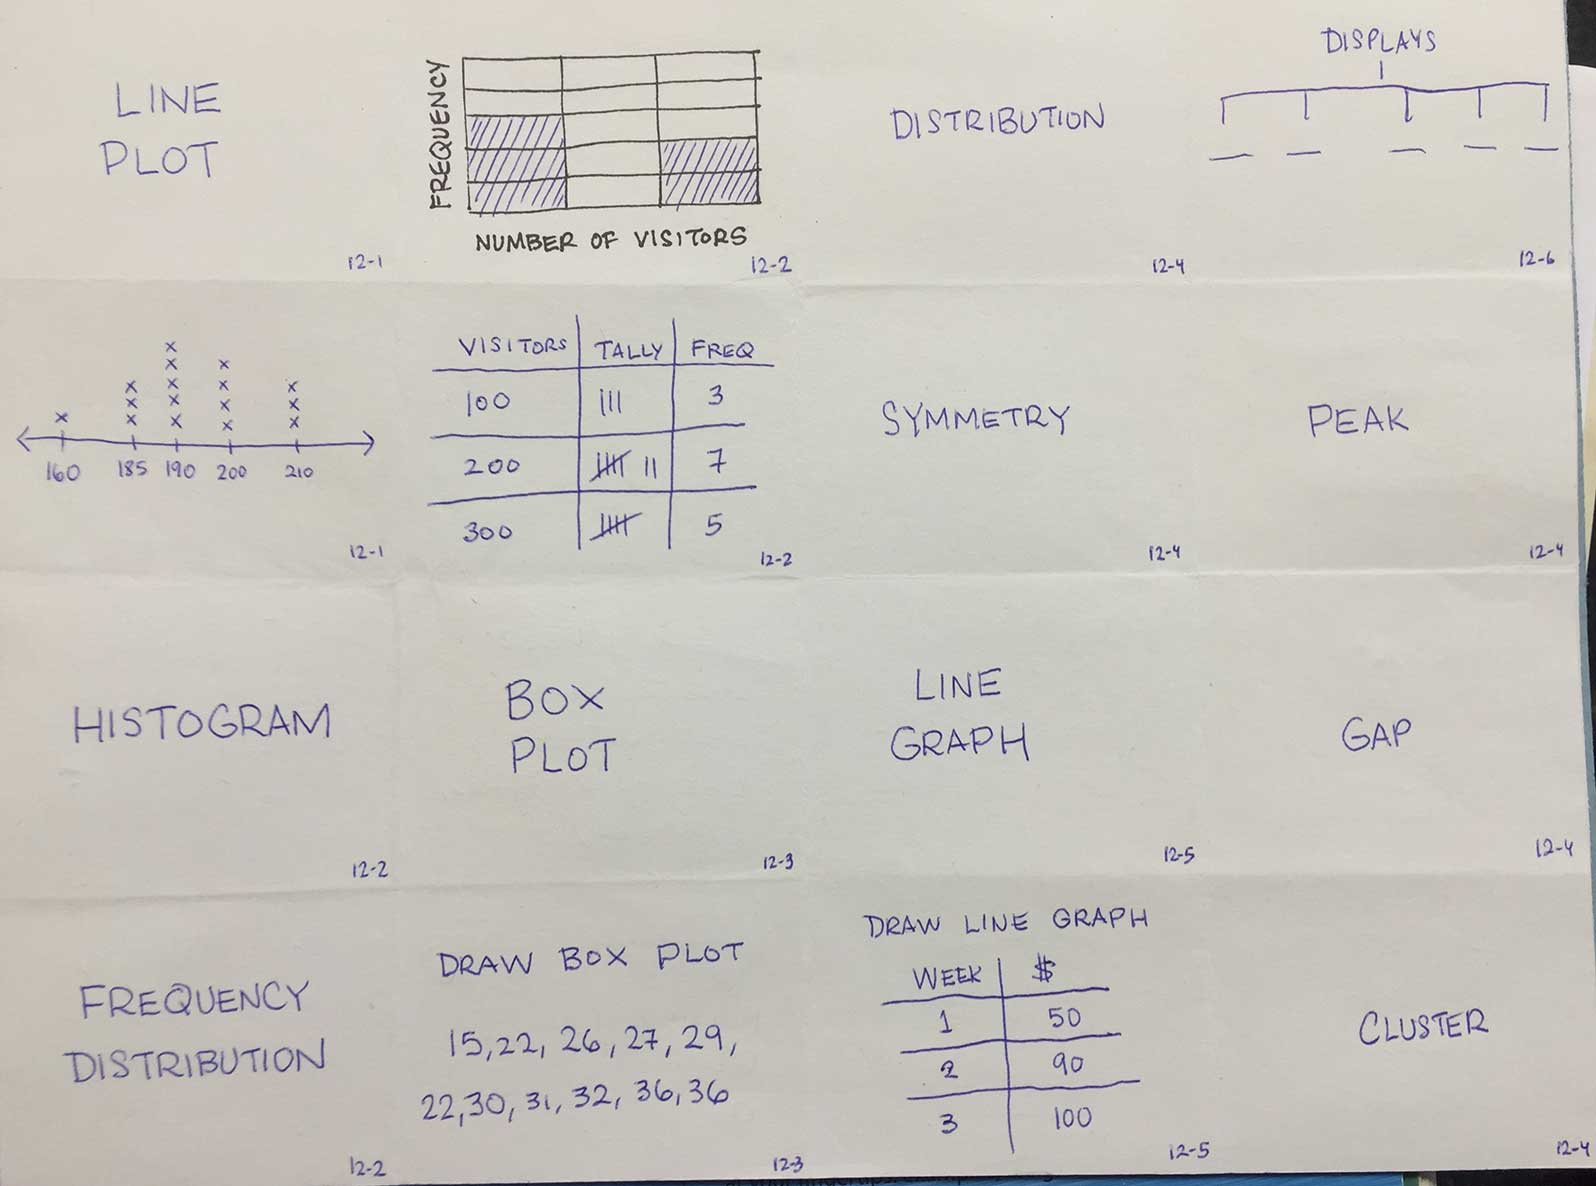 LINE
PLOT
12-1
FREQUENCY
NUMBER OF VISITORS
12-2
DISTRIBUTION
12-4
DISPLAYS
12-6
160 185 190 200 210
12-1
VISITORS TALLY FREQ
100 3
200 7
300 5
12-2
SYMMETRY
12-4
PEAK
12-4
HISTOGRAM
12-2
BOX
PLOT
12-3
LINE
GRAPH
12-5
GAP
12-4
FREQUENCY
DISTRIBUTION
12-2
DRAW BOX PLOT
15, 22, 26, 27, 29,
22, 30, 31, 32, 36, 36
12-3
DRAW LINE GRAPH
WEEK $
1 50
2 90
3 100
12-5
CLUSTER
12-4